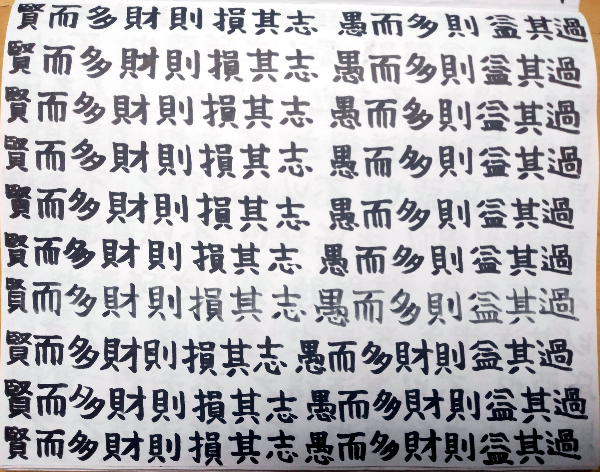 賢而多財則損其志 愚而多則益其過
賢而多財則損其志 愚而多則益其過
賢而多財則損其志 愚而多則益其過
賢而多財則損其志 愚而多則益其過
賢而多財則損其志 愚而多則益其過
賢而多財則損其志 愚而多則益其過
賢而多財則損其志 愚而多則益其過
賢而多財則損其志 愚而多財則益其過
賢而多財則損其志 愚而多財則益其過
賢而多財則損其志 愚而多財則益其過